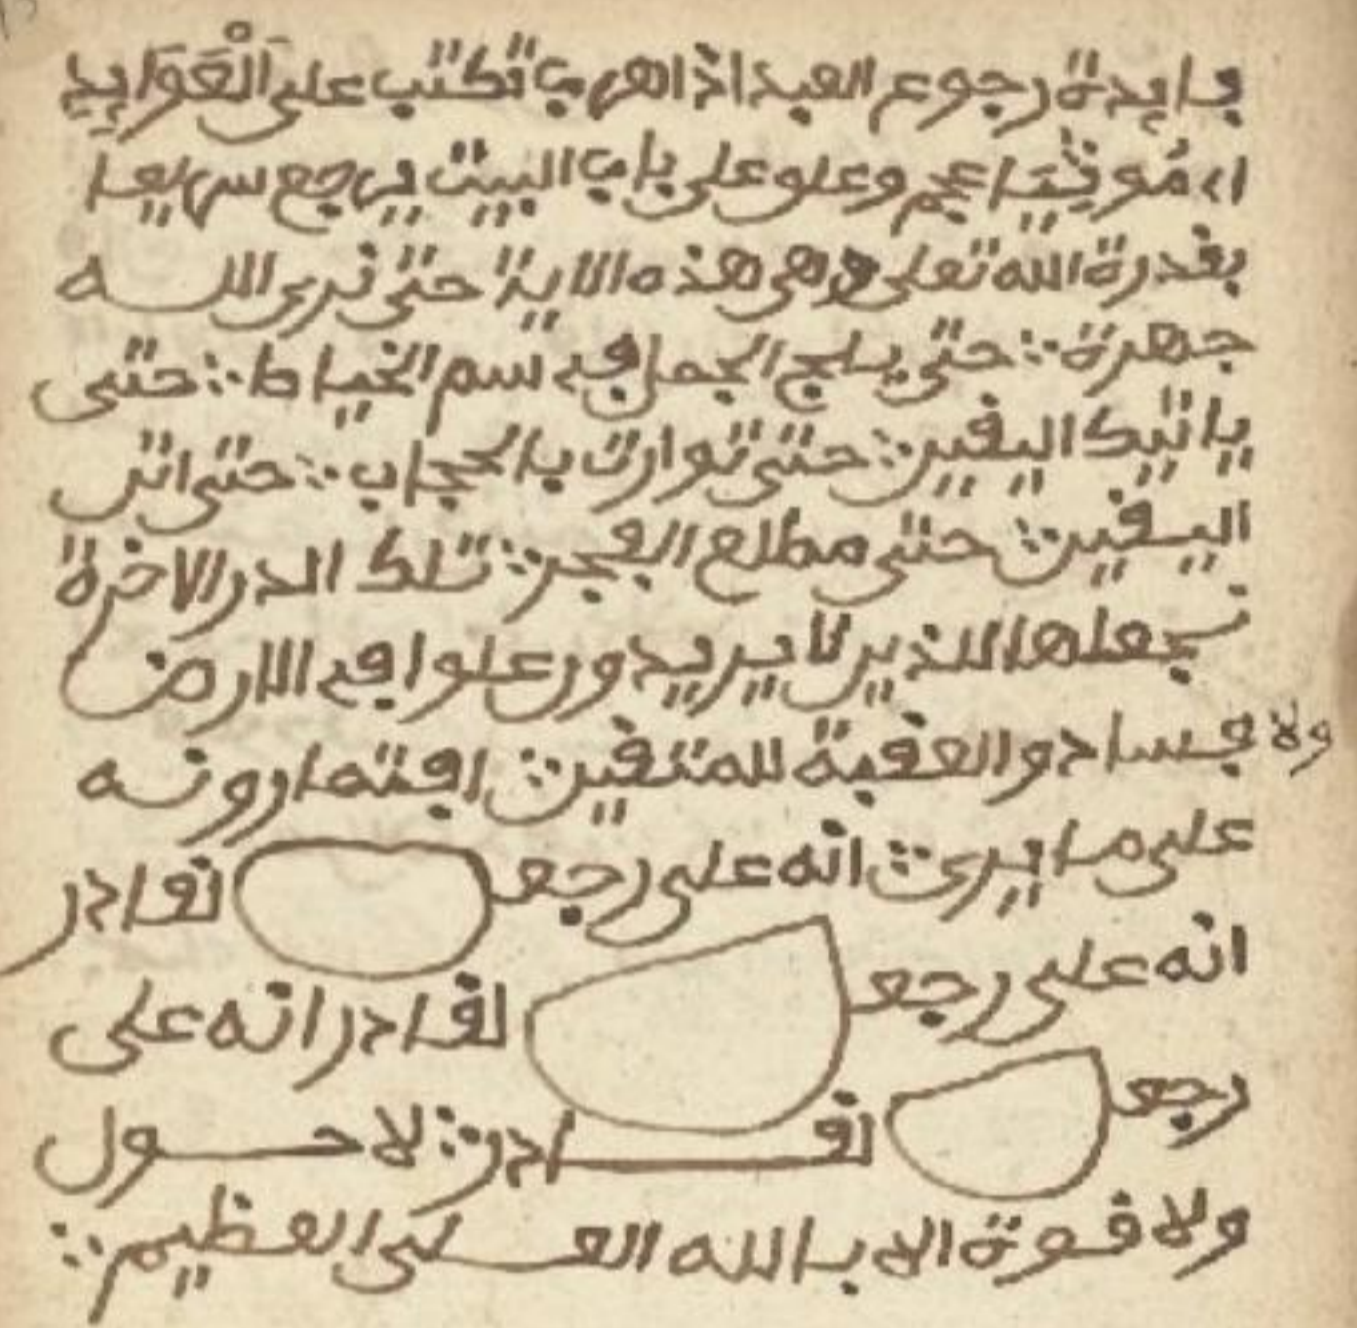 فايدة رجوع العبد اذا هرب تكتب على الْعَوَايِدِ
وعلو على باب البيت يرجع سريعا
بقدرة الله تعلى وهي هذه الاية حتى نرى الله
جهرة ∴ حتى يلج الجمل في سم الخياط ∴ حتى
ياتيك اليقين ∴ حتى توارت بالحجاب ∴ حتى اتى
اليقين ∴ حتى مطلع الفجر ∴ تلك الدر الاخرة
نجعلها للذين لا يريدون علوا في الارض
ولا فسادا والعقبة للمتقين ∴ افتمارونه
على ما يرى ∴ انه على رجعه لقادر
انه على رجعه لقادر انه على
رجعه لقادر ∴ لا حول
ولا قوة الا بالله العلي العظيم ∴